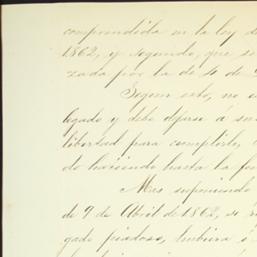 comprendida en la ley de
1862, y segundo, que se
zada por la de 4 de
Segun esto, no
legado y debe dejarse á su
libertad para cumplirle,
do haciendo hasta la
Mas suponiendo
de 9 de Abril de 1862, se
gado piadoso, hubiera